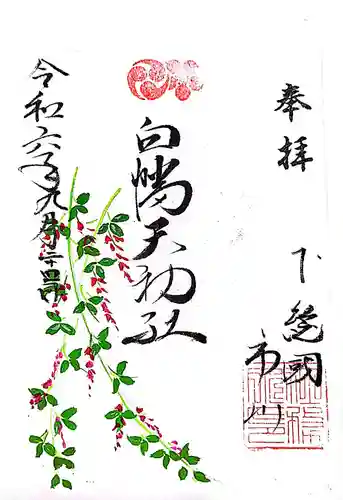 奉拝
下総国
市川
白幡天神社
令和六年九月